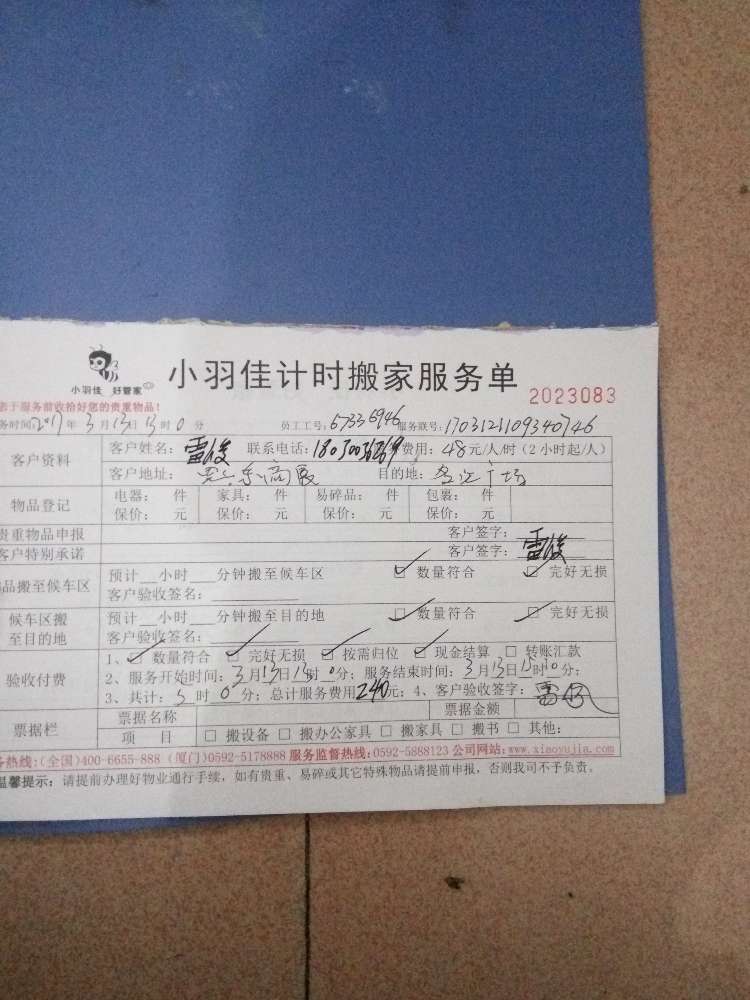 小羽佳 好管家
小羽佳计时搬家服务单
2023083
于服务前收拾好您的贵重物品!
务时间2017年3月13日13时0分 员工工号:67336946 服务联号:170312109340746
客户资料 客户姓名:雷俊 联系电话: 费用:48元/人/时(2小时起/人)
客户地址: 目的地: 广场
物品登记 电器: 件 家具: 件 易碎品: 件 包裹: 件
保价: 元 保价: 元 保价: 元 保价: 元
贵重物品申报 客户签字:
客户特别承诺 客户签字:雷俊
品搬至候车区 预计__小时___分钟搬至候车区 ☑ 数量符合 ☑ 完好无损
客户验收签名:
候车区搬至目的地 预计__小时___分钟搬至目的地 ☑ 数量符合 ☑ 完好无损
客户验收签名:
验收付费 1、☑ 数量符合 ☑ 完好无损 ☑ 按需归位 ☑ 现金结算 □ 转账汇款
2、服务开始时间:3月13日 时0分;服务结束时间:3月13日 时0分;
3、共计:5时0分;总计服务费用240元;4、客户验收签字:雷俊
票据栏 票据名称 票据金额
项 目 □ 搬设备 □ 搬办公家具 □ 搬家具 □ 搬书 □ 其他:
务热线:(全国)400-6655-888 (厦门)0592-5178888 服务监督热线:0592-5888123 公司网站:www.xiaoyujia.com
温馨提示:请提前办理好物业通行手续,如有贵重、易碎或其它特殊物品请提前申报,否则我司不予负责。